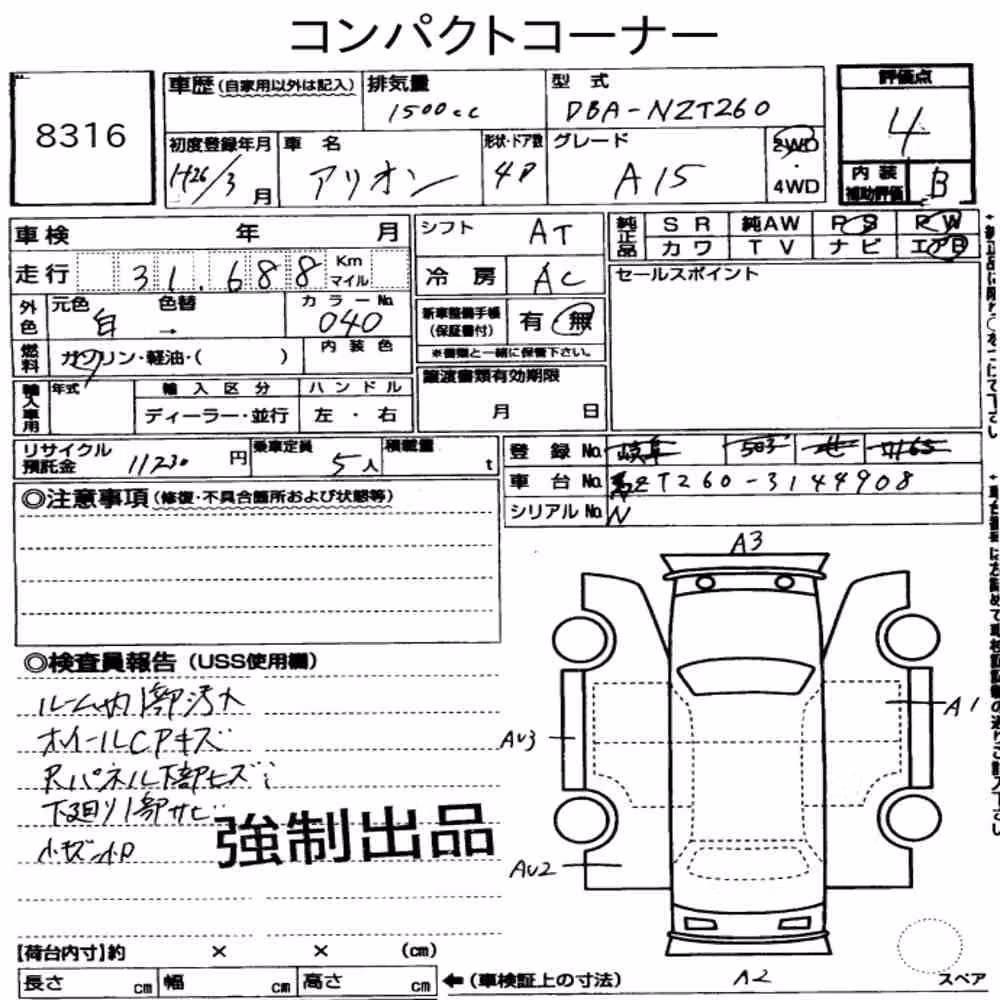 コンパクトコーナー
8316
車歴(自家用以外は記入) 排気量 1500cc 型式 DBA-NZT260
初度登録年月 H26/3月 車名 アリオン 形状・ドア数 4D グレード A15 2WD・4WD
評価点 4
内装補助評価 B
車検 年 月
走行 31,688 Km マイル
外色 元色 白 色替 → カラーNo. 040
燃料 ガソリン・軽油・( ) 内装色
輸入車用 年式 輸入区分 ディーラー・並行 ハンドル 左・右
シフト AT
冷房 AC
新車整備手帳(保証書付) 有 無
※書類と一緒に保管下さい。
譲渡書類有効期限
月 日
純正品 SR 純AW PS PW
カワ TV ナビ エアB
セールスポイント
リサイクル預託金 11230円 乗車定員 5人 積載量 t
登録No. 岐阜 503
車台No. NZT260-3144908
シリアルNo.
◎注意事項(修復・不具合箇所および状態等)
◎検査員報告(USS使用欄)
ルーム内1部汚れ
ホイールCPキズ
Rパネル下部キズ
下廻り1部サビ
強制出品
A3
A1
AU3
AU2
A2
スペア
【荷台内寸】約 × × (cm)
長さ cm 幅 cm 高さ cm ←(車検証上の寸法)